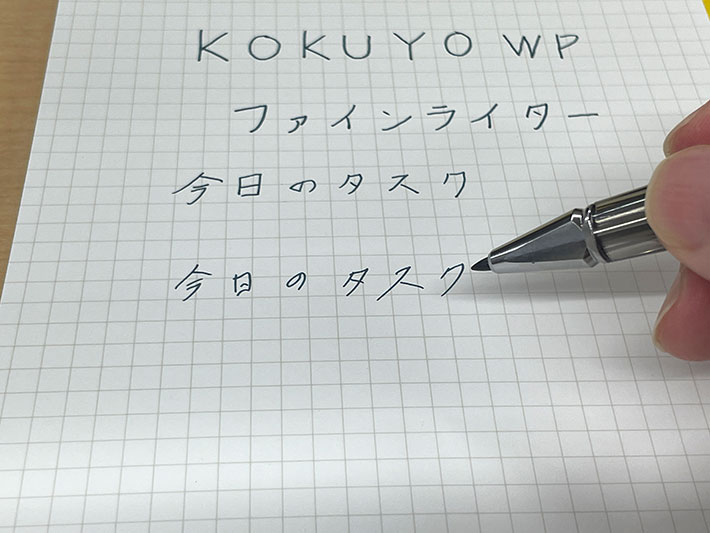 KOKUYO WP
ファインライター
今日のタスク
今日のタスク